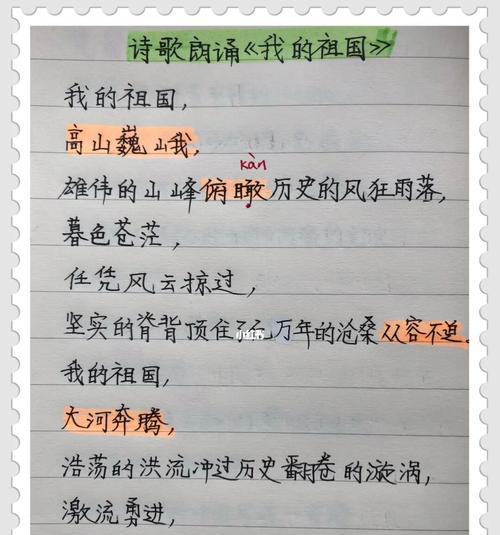 诗歌朗诵《我的祖国》
我的祖国,
高山巍峨,
kàn
雄伟的山峰俯瞰历史的风狂雨落,
暮色苍茫,
任凭风云掠过,
坚实的脊背顶住了亿万年的沧桑从容不迫。
小红书
我的祖国,
大河奔腾,
浩荡的洪流冲过历史翻卷的漩涡,
激流勇进,